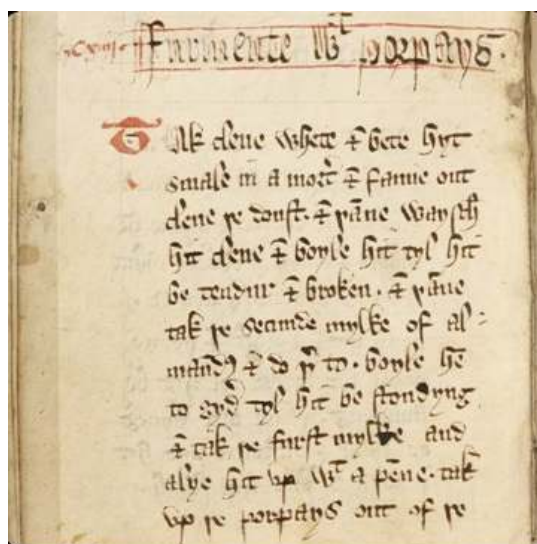 .cxvii. Furmente wt porpays.
Tak clene whete & bete hyt
smale in a mort̛ & fanne out
clene þe doust. & þāne waysch
hit clene & boyle hit tyl hit
be tendur & broken. & þāne
tak þe secunde mylke of al-
maund & do þ to. boyle hē
to gyd tyl hit be stondyng
& tak þe furst mylke and
alye hit vp wt a pēne. tak
vp þe porpays out of þe